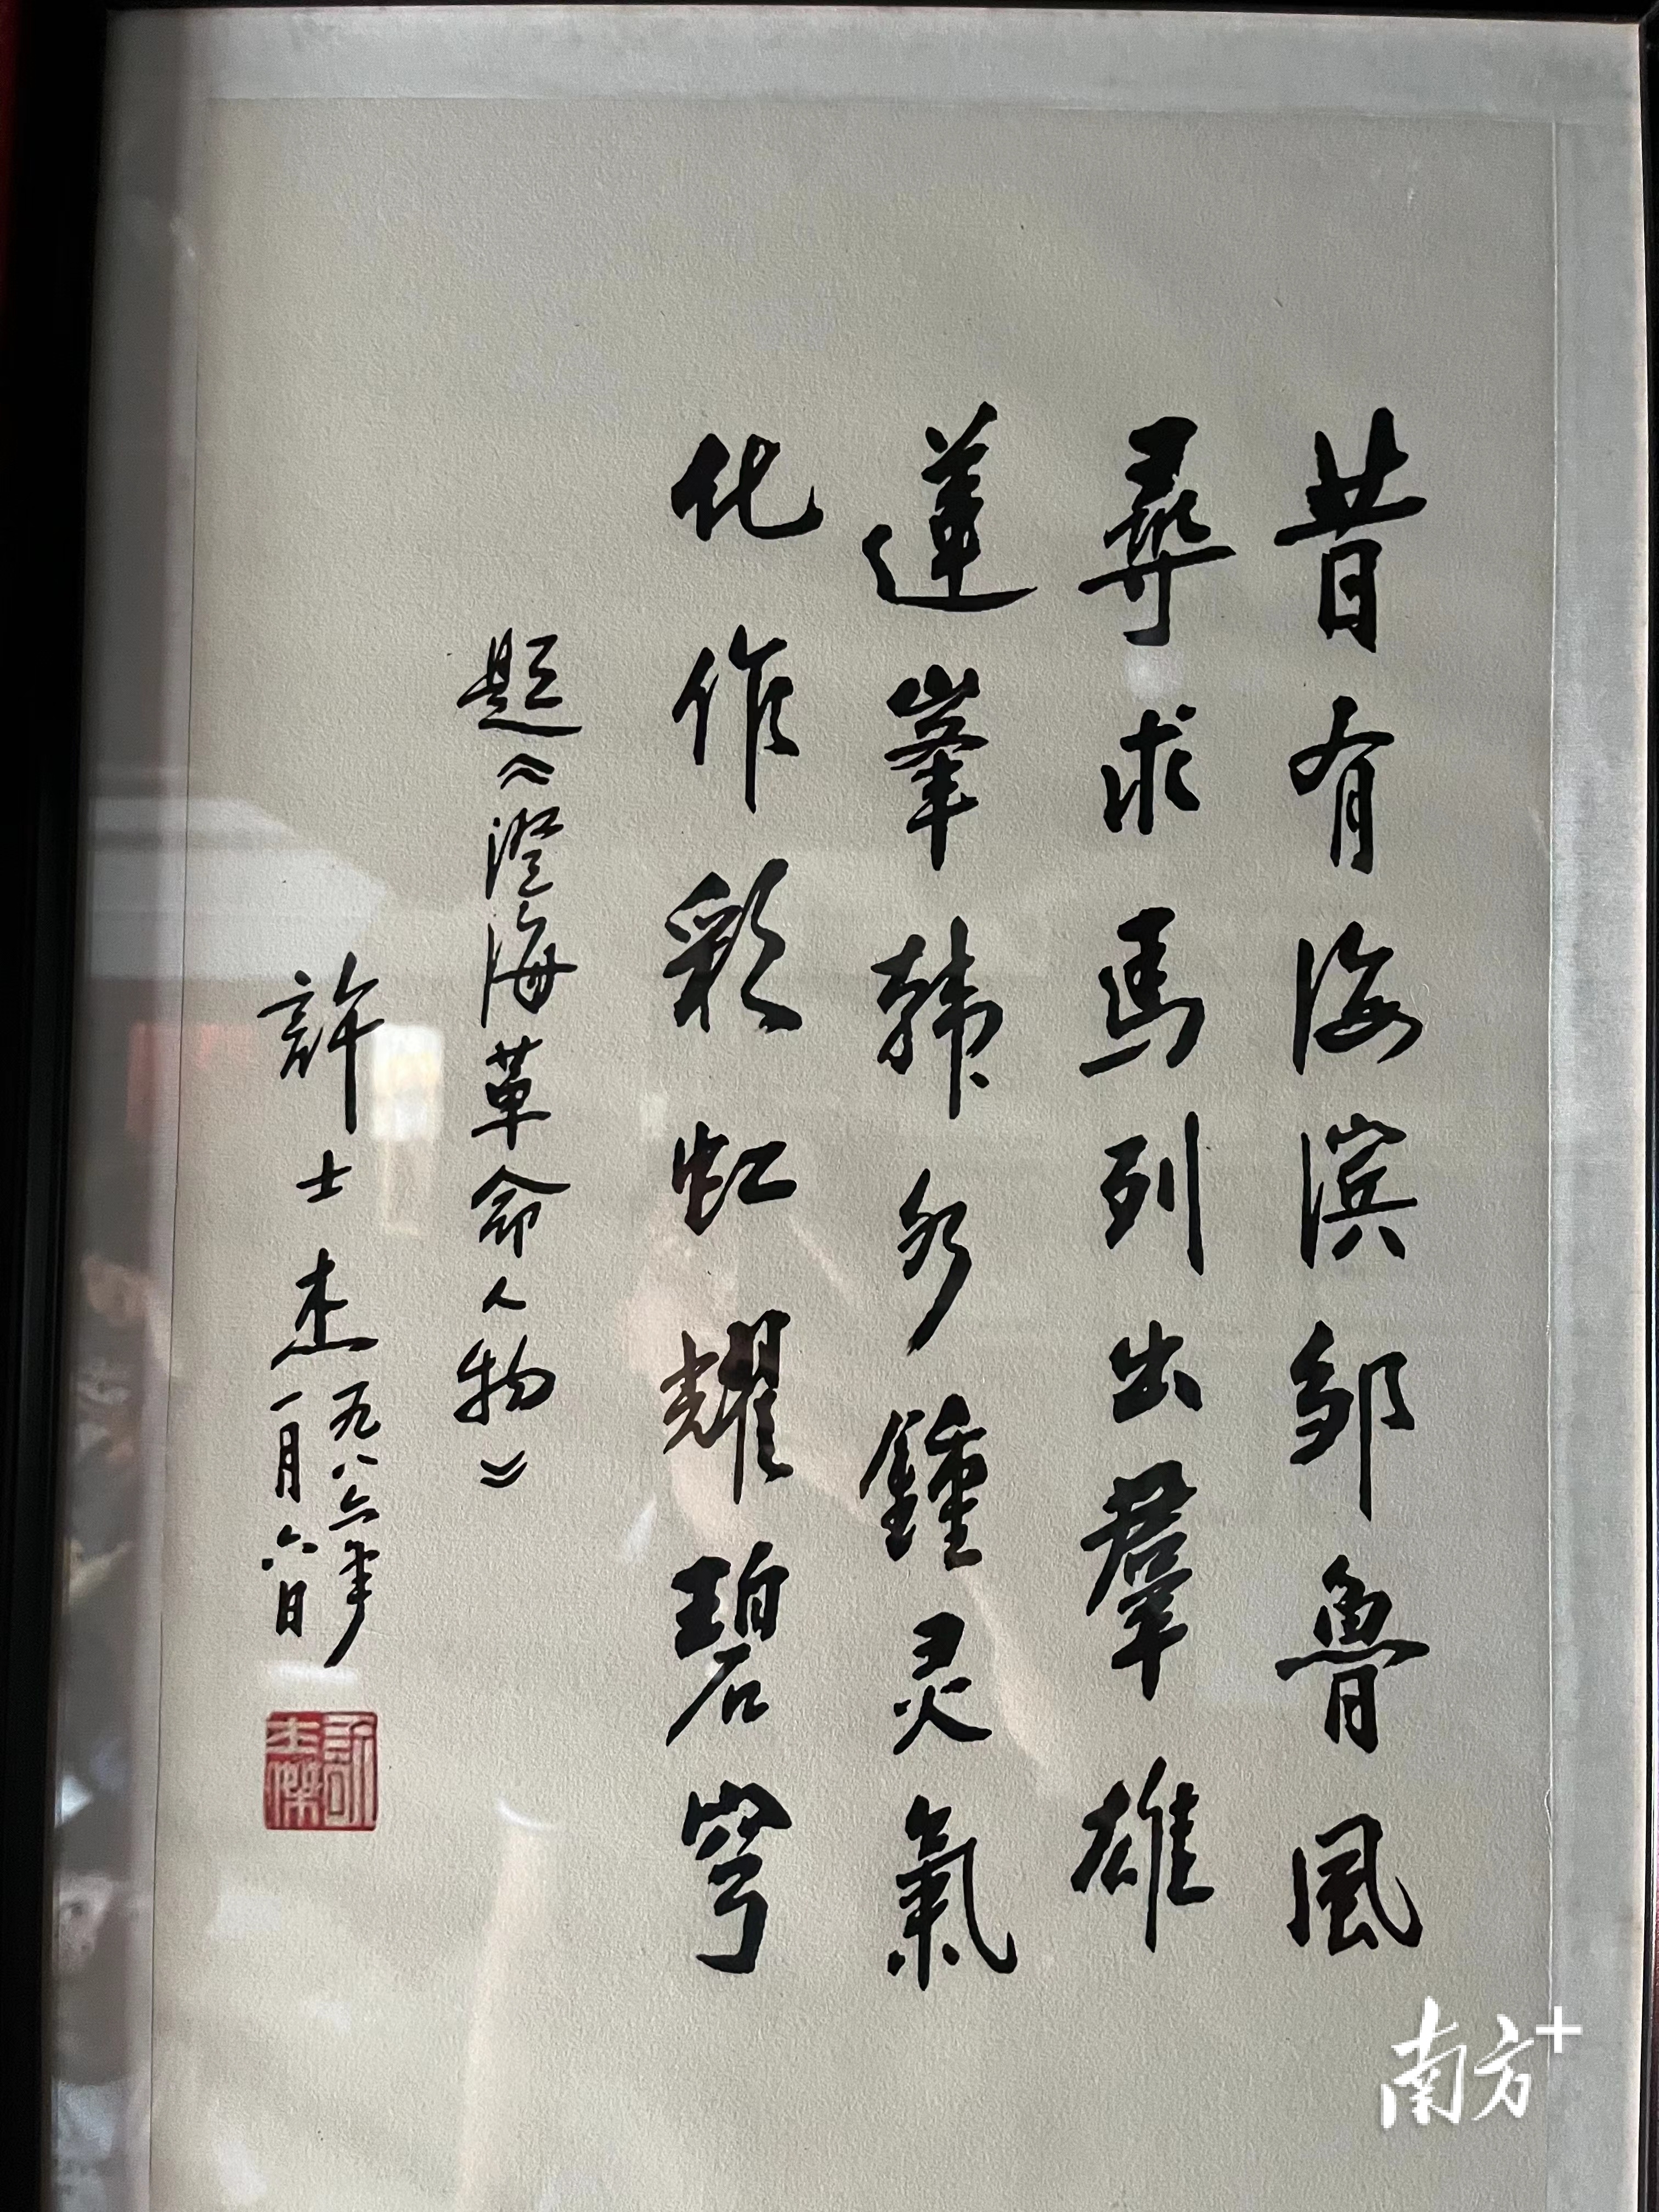 昔有海滨邹鲁风
尋求馬列出羣雄
蓮峯韩水鍾灵氣
化作彩虹耀碧穹
题《澄海革命人物》
許士杰
一九八六年
一月六日
許士杰
南方+